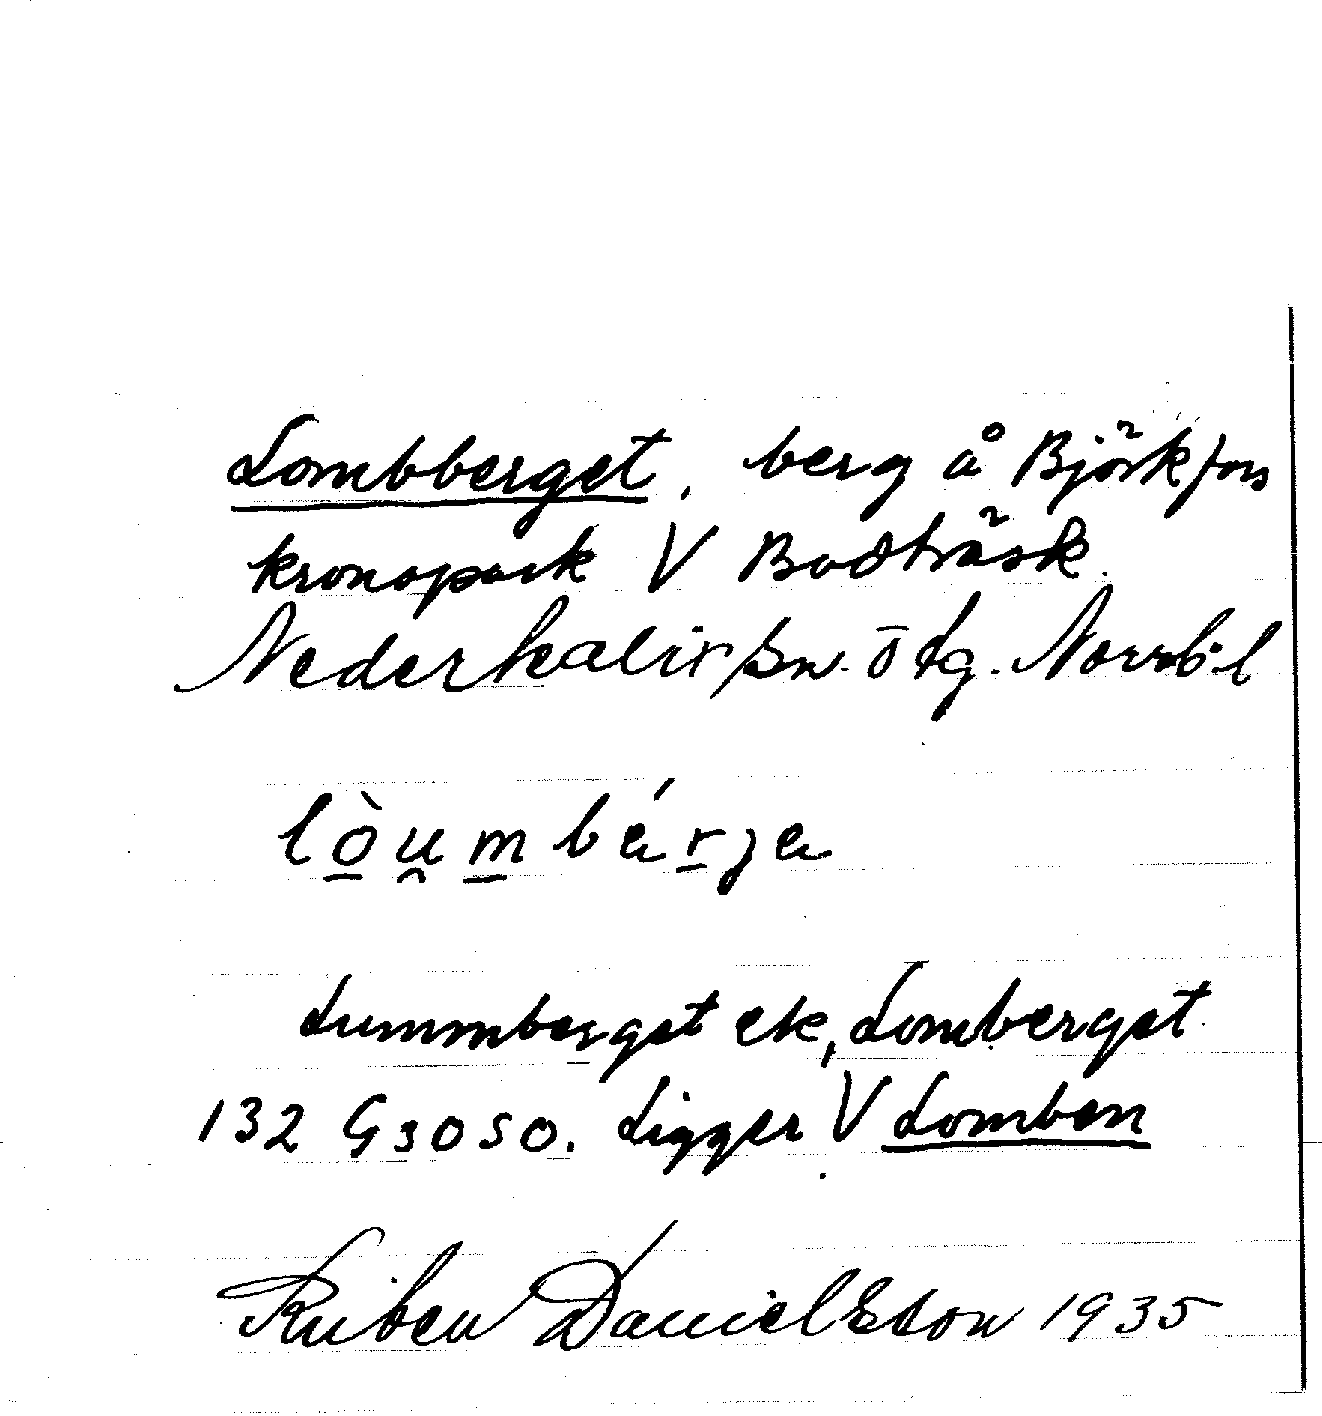 Lombberget, berg å Björkfors
kronopark V Bodträsk.
Nederkalix sn. ö tg. Norrb. l
lòu̯mbérja
Lummberget ek, Lomberget
132 G3050. Ligger V Lomben
Ruben Danielsson 1935